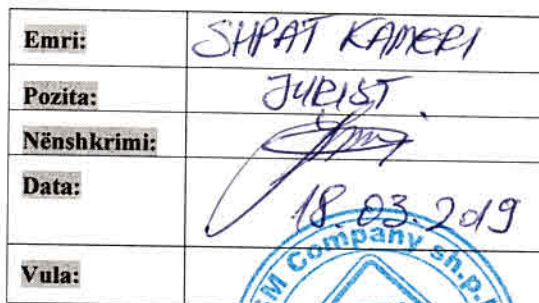 Emri: SHPAT KAMERI
Pozita: JURIST
Nënshkrimi:
Data: 18.03.2019
Vula:
Company sh.p.k